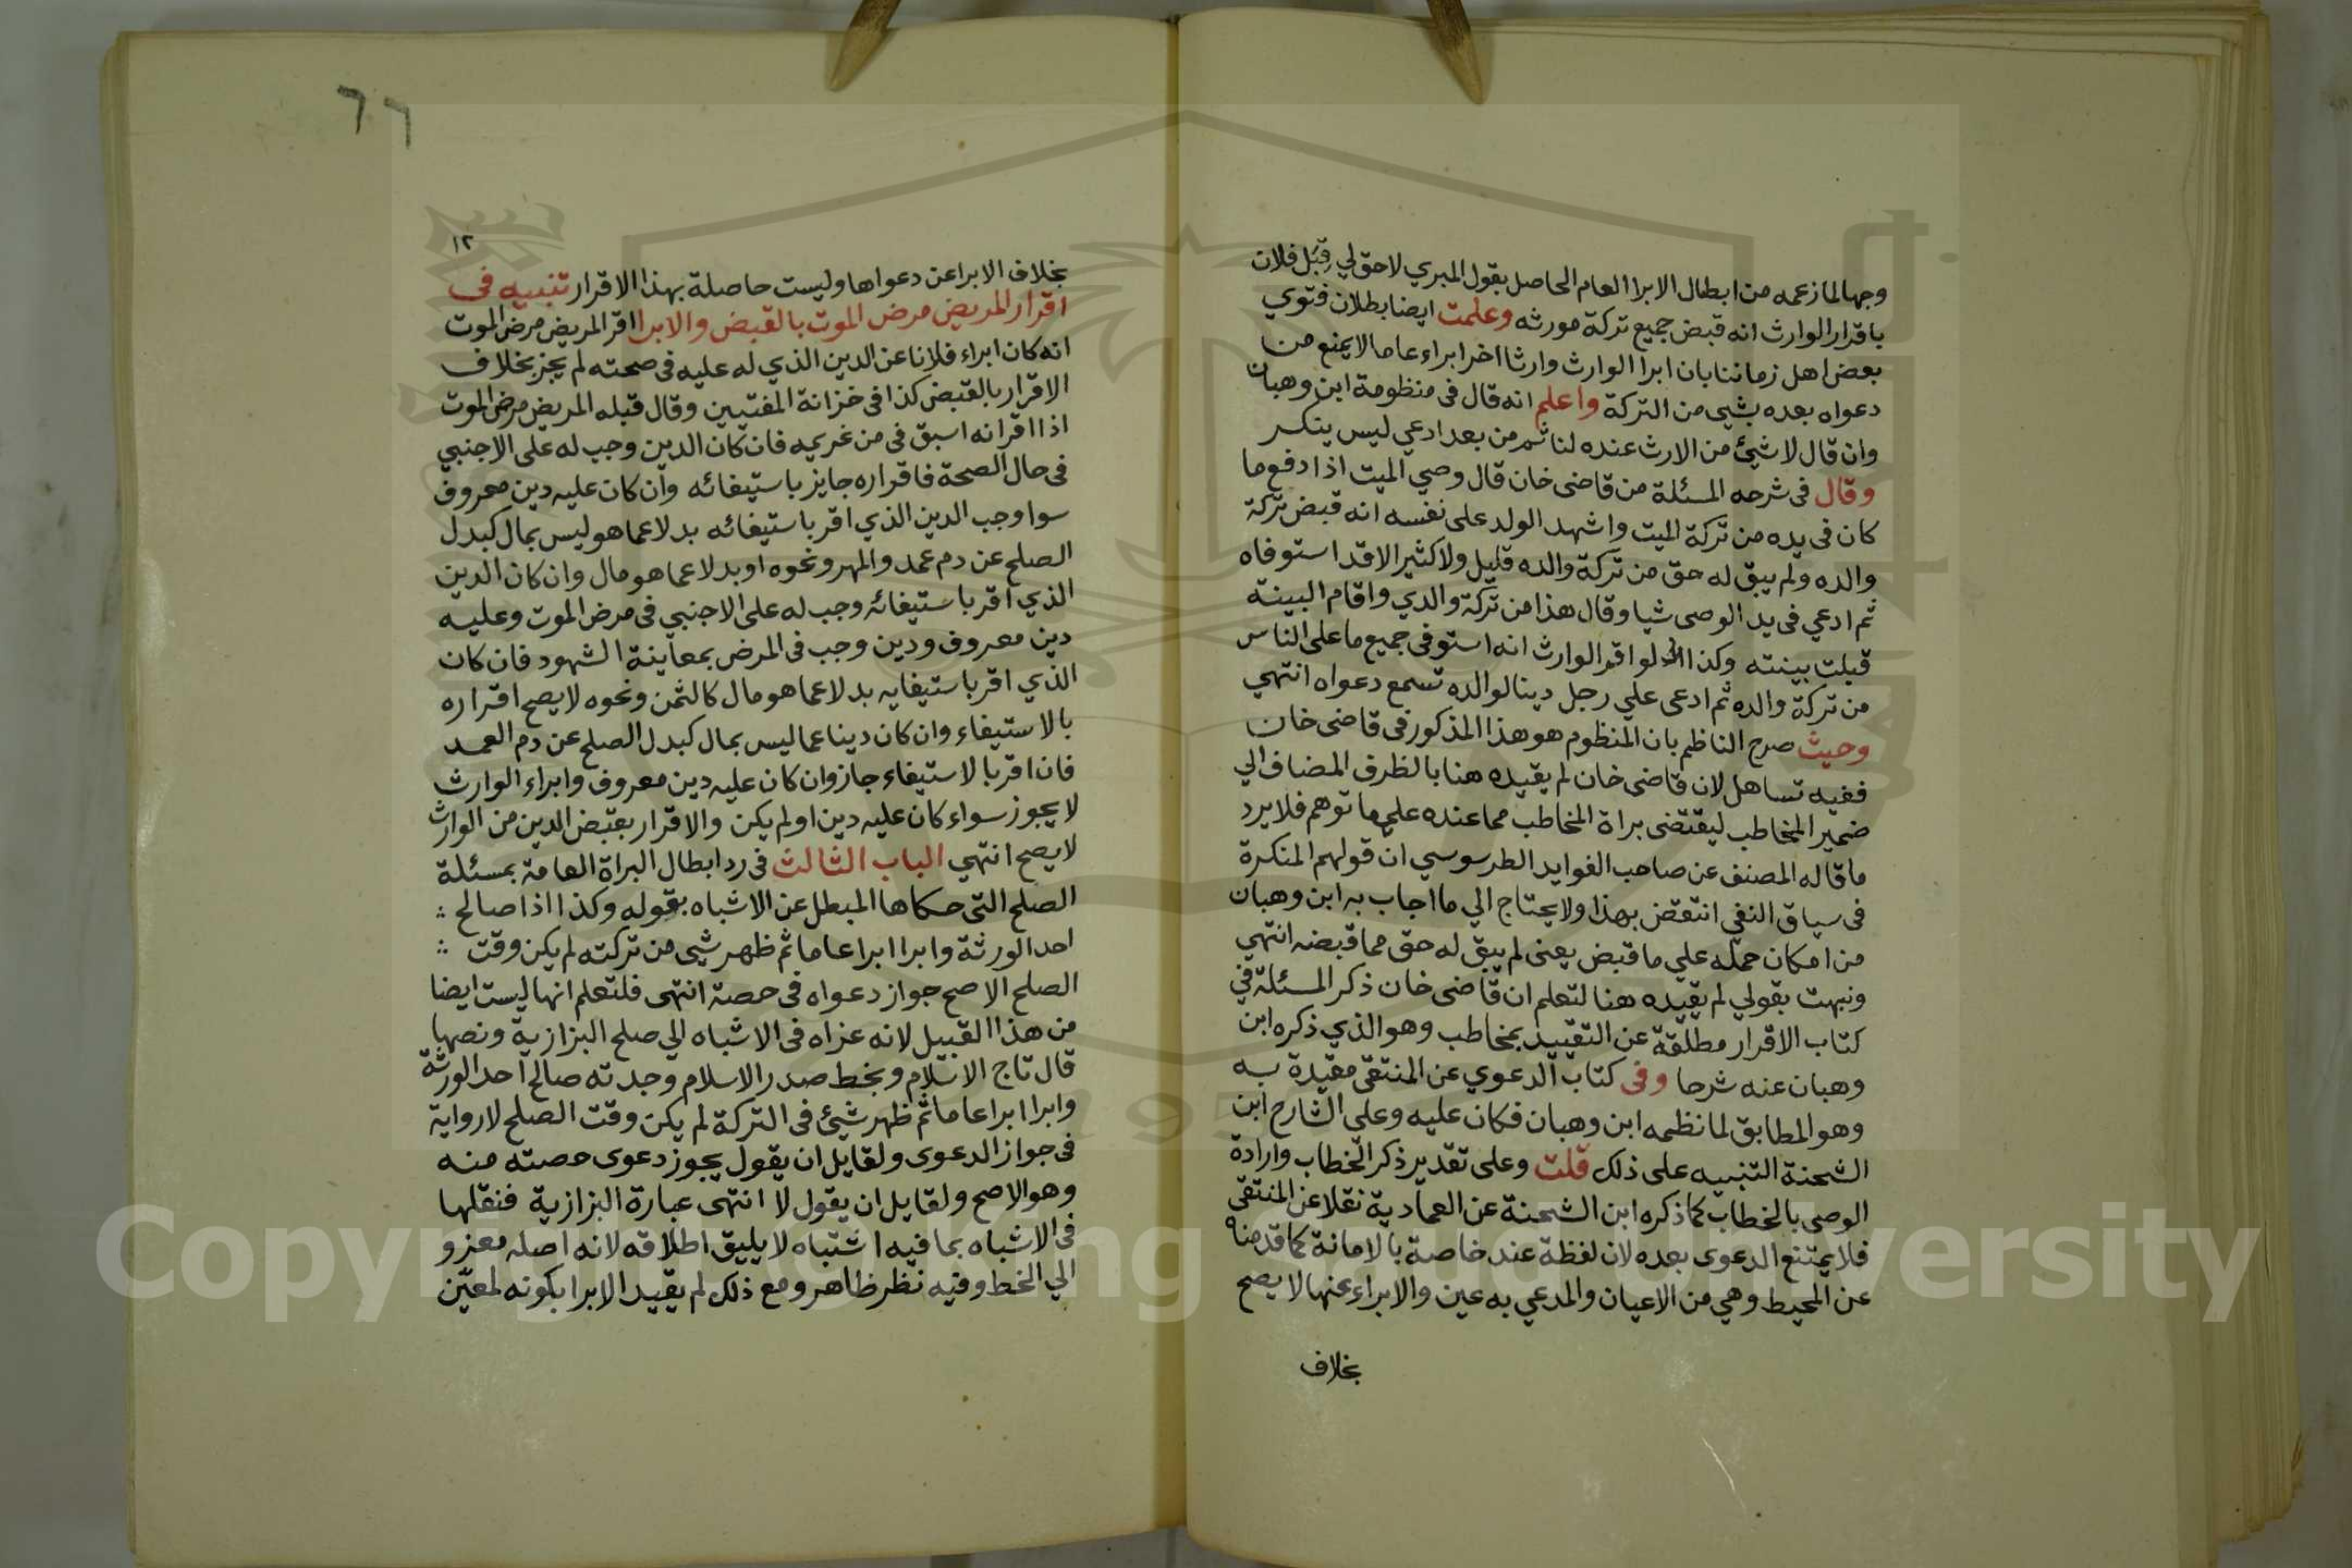 وجها لما زعمه من ابطال الابرا العام الحاصل بقول المبري لا حق لي قِبَل فلان
باقرار الوارث انه قبض جميع تركة مورثه وعلمت ايضا بطلان فتوي
بعض اهل زماننا بان ابرا الوارث وارثا اخر ابراء عاما لا يمنع من
دعواه بعده بشيء من التركة واعلم انه قال في منظومة ابن وهبان
وان قال لا شيئ من الارث عنده لنا ثم من بعد ادعي ليس ينكر
وقال في شرحه المسئلة من قاضى خان قال وصي الميت اذا دفع ما
كان في يده من تركة الميت واشهد الولد على نفسه انه قبض تركة
والده ولم يبق له حق من تركة والده قليل ولا كثير الا قد استوفاه
ثم ادعي في يد الوصى شيا وقال هذا من تركة والدي واقام البينة
قبلت بينته وكذا لو اقر الوارث انه استوفى جميع ما على الناس
من تركة والده ثم ادعى علي رجل دينا لوالده تسمع دعواه انتهي
وحيث صرح الناظم بان المنظوم هو هذا المذكور في قاضى خان
ففيه تساهل لان قاضى خان لم يقيده هنا بالظرف المضاف الي
ضمير المخاطب ليقتضى براة المخاطب مما عنده علي ما توهم فلا يرد
ما قاله المصنف عن صاحب الفوايد الطرسوسي ان قولهم النكرة
في سياق النفي انتقض بهذا ولا يحتاج الي ما اجاب به ابن وهبان
من امكان حمله علي ما قبض يعنى لم يبق له حق مما قبضه انتهي
ونبهت بقولي لم يقيده هنا لتعلم ان قاضى خان ذكر المسئلة في
كتاب الاقرار مطلقة عن التقييد بمخاطب وهو الذي ذكره ابن
وهبان عنه شرحا وفى كتاب الدعوي عن المنتقى مقيدة به
وهو المطابق لما نظمه ابن وهبان فكان عليه وعلى الشارح ابن
الشحنة التنبيه على ذلك قلت وعلى تقدير ذكر الخطاب وارادة
الوصى بالخطاب كما ذكره ابن الشحنة عن العمادية نقلا عن المنتقى
فلا يمتنع الدعوى بعده لان لفظة عند خاصة بالامانة كما قدمناه
عن المحيط وهي من الاعيان والمدعي به عين والابراء عنها لا يصح
بخلاف
٦٦
١٢
بخلاف الابرا عن دعواها وليست حاصلة بهذا الاقرار تنبيه في
اقرار المريض مرض الموت بالقبض والابرا اقر المريض مرض الموت
انه كان ابراء فلانا عن الدين الذي له عليه في صحته لم يجز بخلاف
الاقرار بالقبض كذا في خزانة المفتيين وقال قبله المريض مرض الموت
اذا اقر انه اسبق في من غريمه فان كان الدين وجب له على الاجنبي
في حال الصحة فاقراره جايز باستيفائه وان كان عليه دين معروف
سوا وجب الدين الذي اقر باستيفائه بدلا عما هو ليس بمال كبدل
الصلح عن دم عمد والمهر ونحوه او بدلا عما هو مال وان كان الدين
الذي اقر باستيفائه وجب له على الاجنبي في مرض الموت وعليه
دين معروف ودين وجب في المرض بمعاينة الشهود فان كان
الذي اقر باستيفايه بدلا عما هو مال كالثمن ونحوه لا يصح اقراره
بالاستيفاء وان كان دينا عما ليس بمال كبدل الصلح عن دم العمد
فان اقر بالاستيفاء جاز وان كان عليه دين معروف وابراء الوارث
لا يجوز سواء كان عليه دين او لم يكن والاقرار بقبض الدين من الوارث
لا يصح انتهي الباب الثالث في رد ابطال البراة العامة بمسئلة
الصلح التى حكاها المبطل عن الاشباه بقوله وكذا اذا صالح
احد الورثة وابرا ابرا عاما ثم ظهر شيى من تركته لم يكن وقت
الصلح الاصح جواز دعواه في حصة انتهى فلتعلم انها ليست ايضا
من هذا القبيل لانه عزاه في الاشباه الي صلح البزازية ونصها
قال تاج الاسلام وبخط صدر الاسلام وجدته صالح احد الورثة
وابرا ابرا عاما ثم ظهر شيئ في التركة لم يكن وقت الصلح لا رواية
في جواز الدعوى ولقايل ان يقول يجوز دعوى حصته منه
وهو الاصح ولقايل ان يقول لا انتهى عبارة البزازية فنقلها
في الاشباه بما فيه اشتباه لا يليق اطلاقه لانه اصله معزو
الي الخط وفيه نظر ظاهر ومع ذلك لم يقيد الابرا بكونه لمعيّن
Copyright © King Saud University